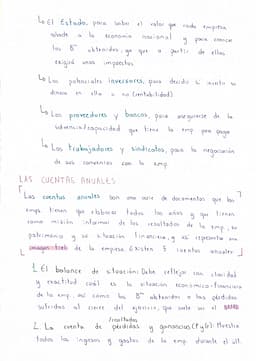 ↳ El Estado, para saber el valor que cada empresa
añade a la economía nacional y para conocer
los Bos obtenidos, ya que a partir de ellos
exigirá unos impuestos
↳ Los potenciales inversores, para decidir si invertir su
dinero en ella o no (rentabilidad)
↳ Los proveedores y bancos, para asegurarse de la
solvencia/capacidad que tiene la emp para pagar
↳ Los trabajadores y sindicatos, para la negociación
de sus convenios con la emp.
LAS CUENTAS ANUALES
Las cuentas anuales son una serie de documentos que las
emps tienen que elaborar todos los años y que tienen
como misión informar de los resultados de la emp, su
patrimonio y su situación financiera, y así representar una
imagen fiel de la empresa. Existen 5 cuentas anuales
1. El balance de situación: Debe reflejar con claridad
y exactitud cuál es la situación económico-financiera
de la emp, así como los Bos obtenidos o las pérdidas
sufridas al cierre del ejercicio, que suele ser el
/resultados
2. La cuenta de pérdidas y ganancias (PyG): Muestra
todos los ingresos y gastos de la emp durante el últ.